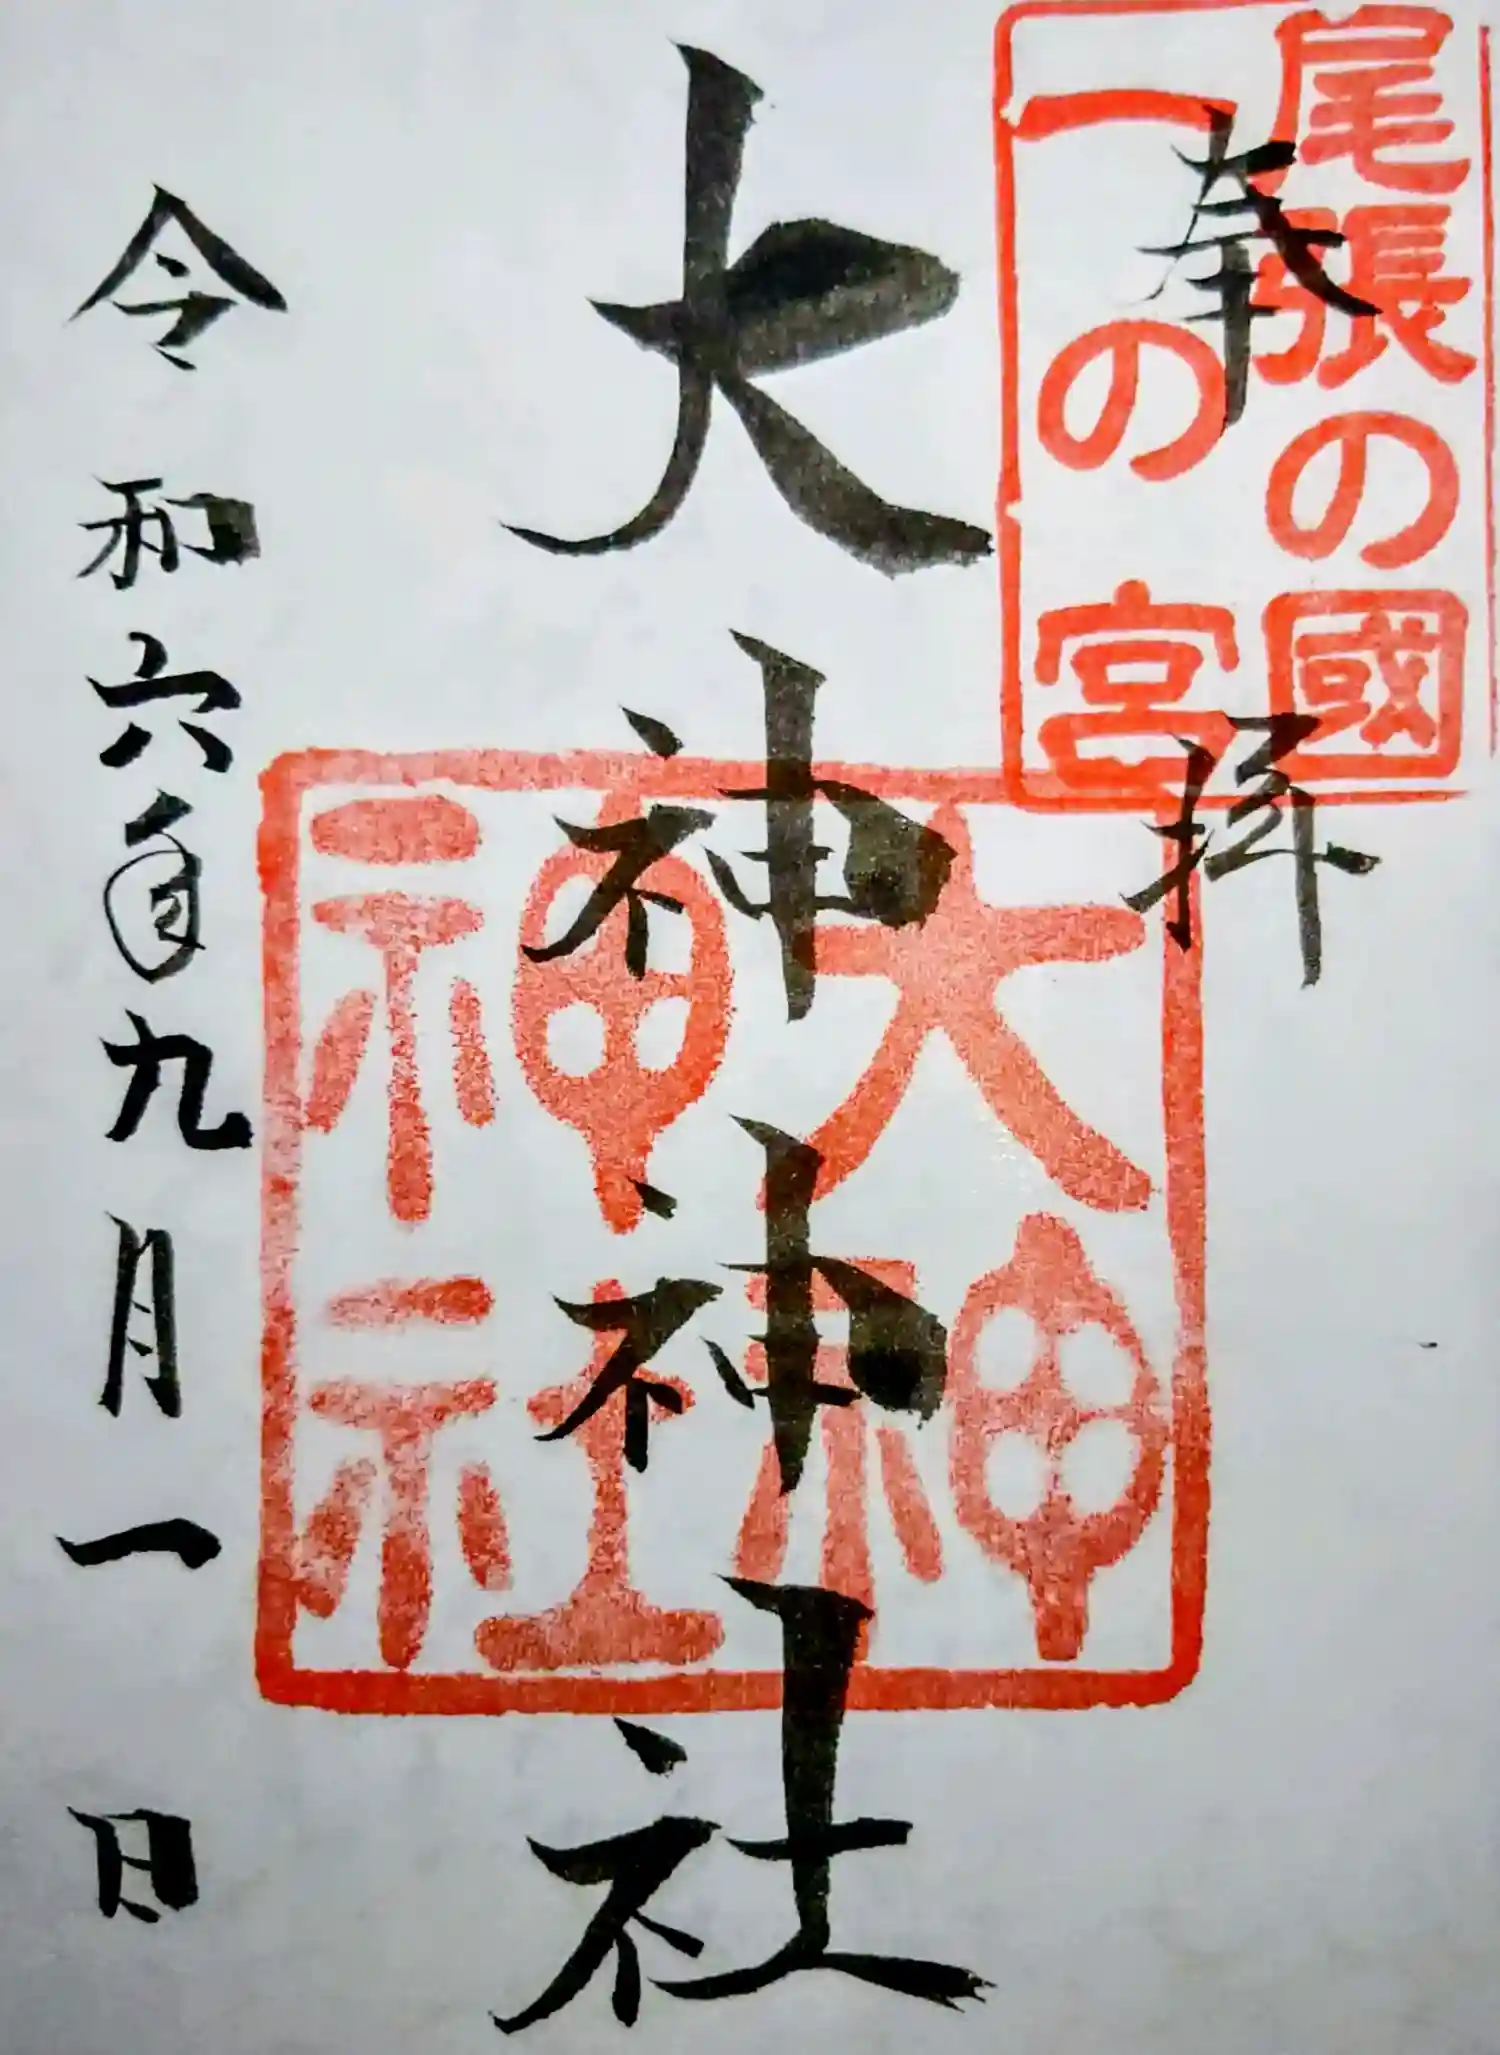 奉拝
尾張の國
一の宮
大神神社
大神
神社
令和六年九月一日